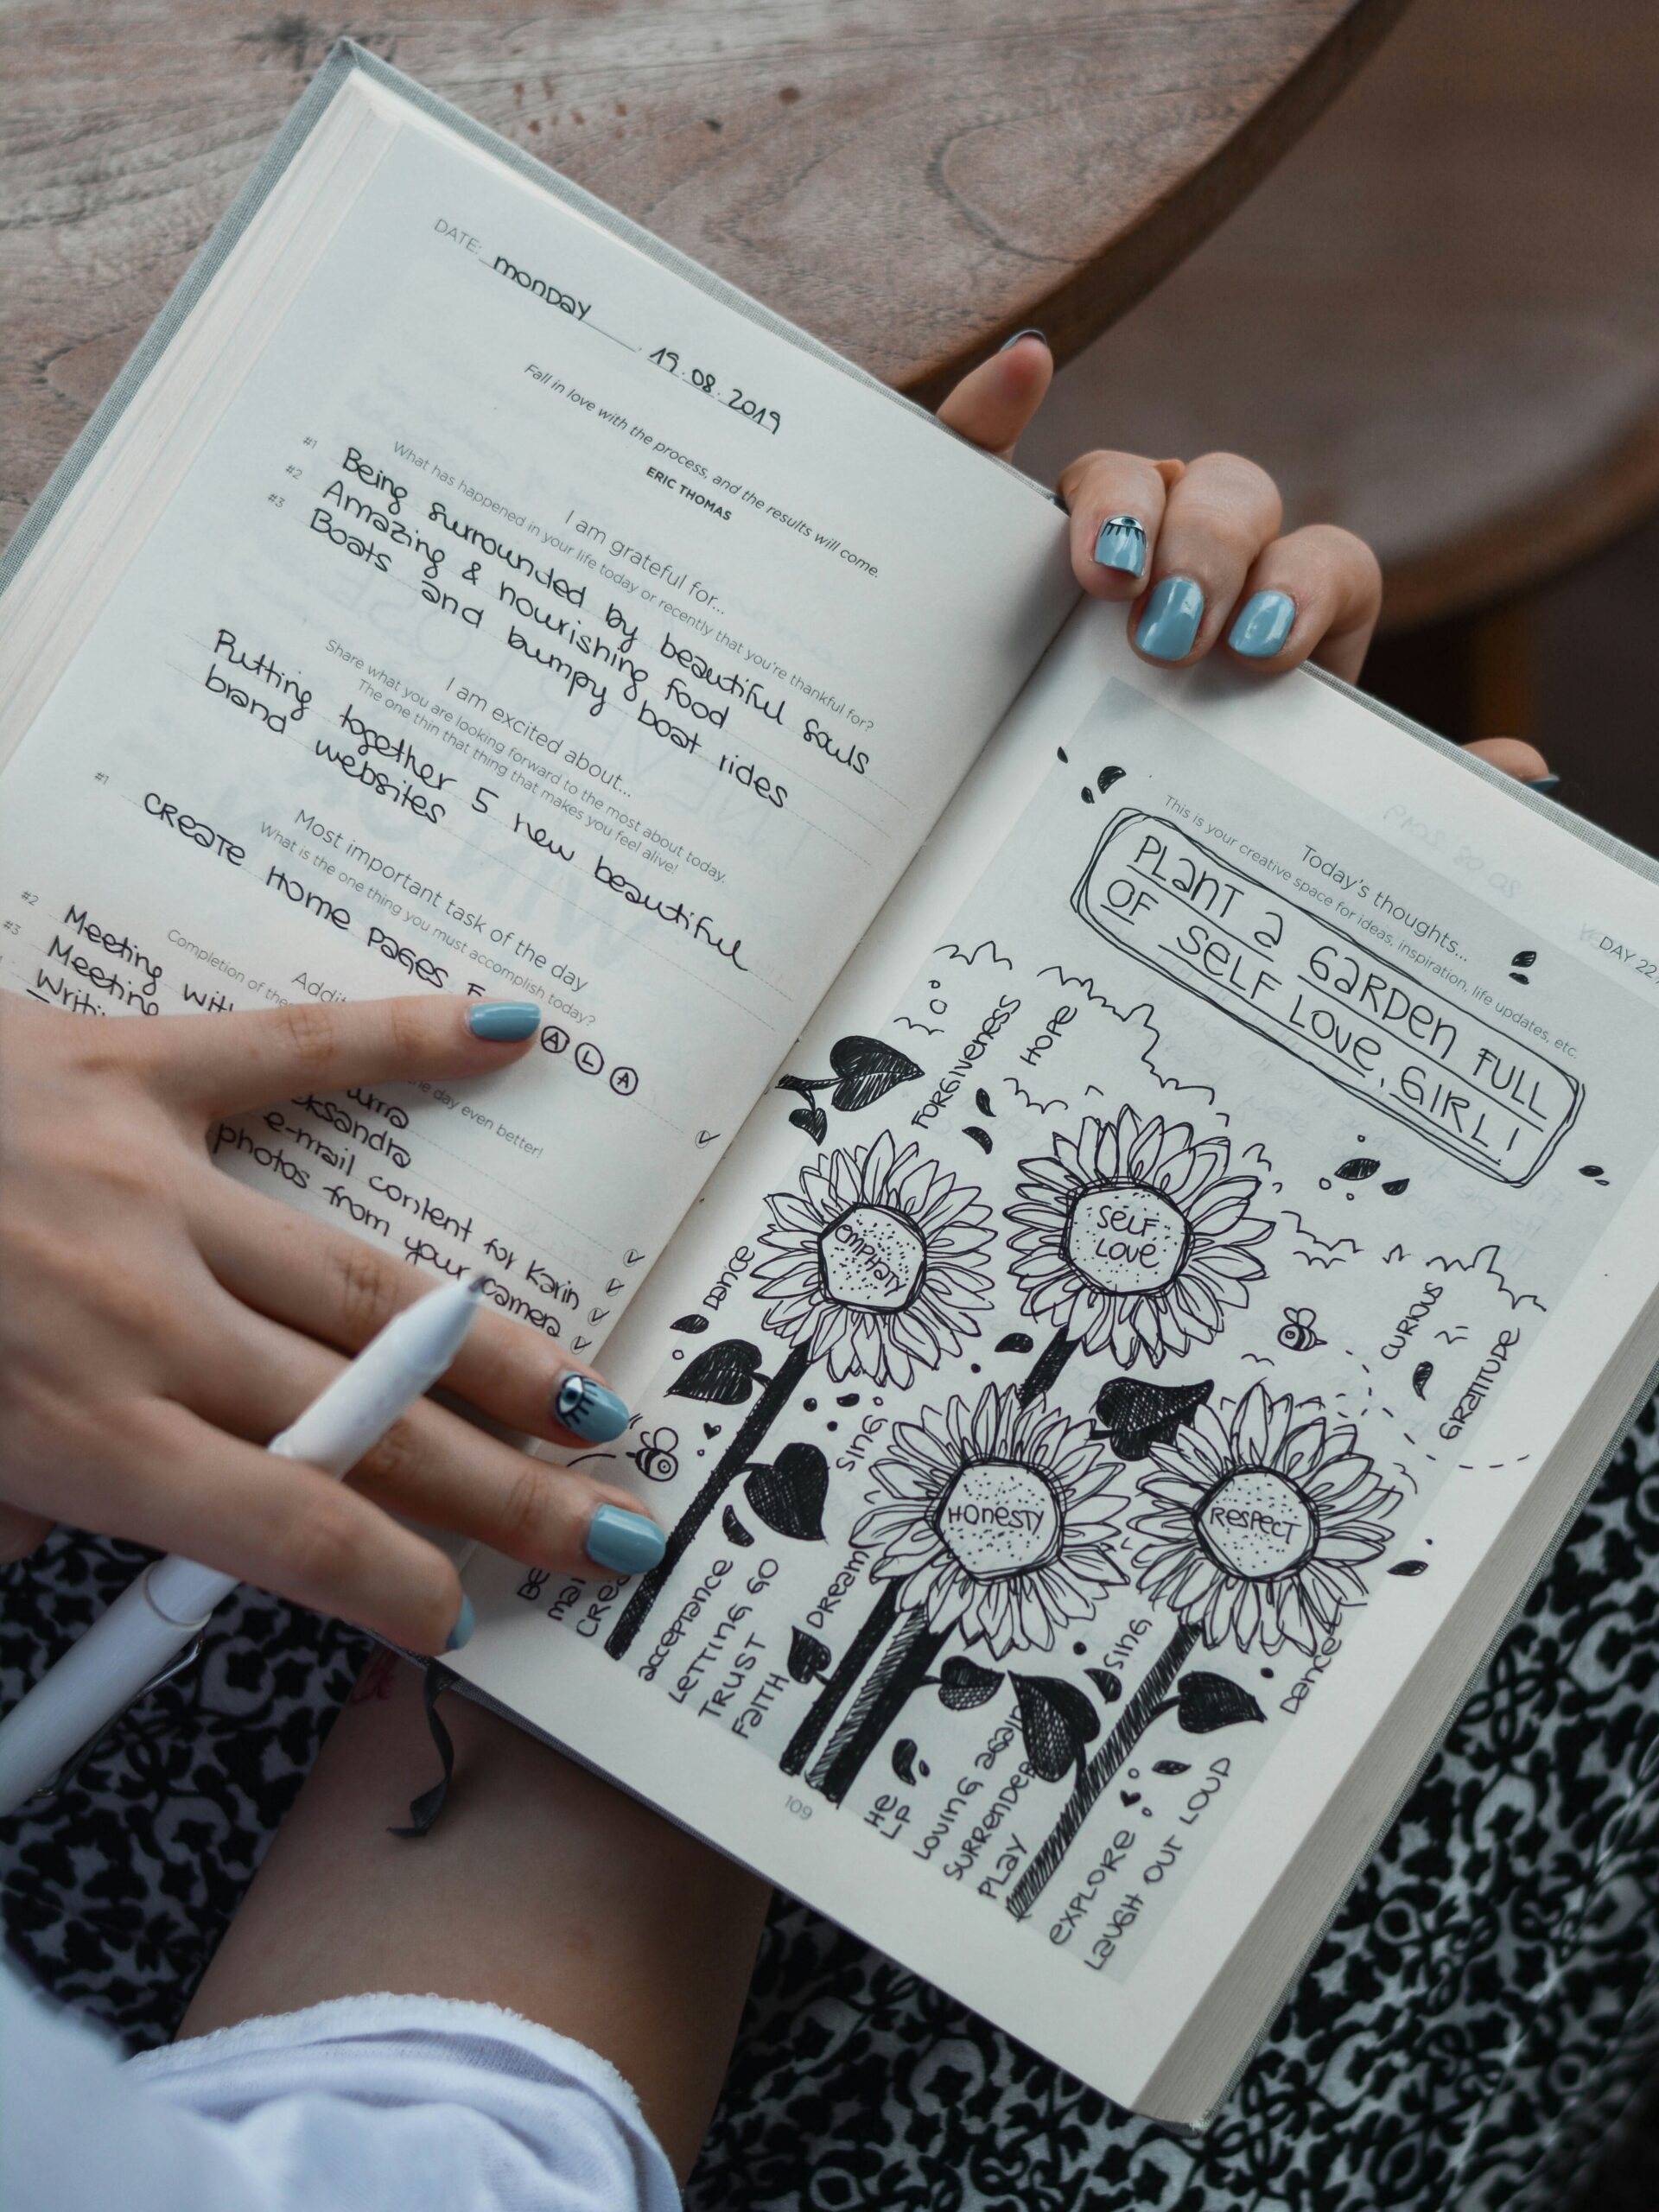 DATE: monday . 19.08.2019
Fall in love with the process, and the results will come.
ERIC THOMAS
I am grateful for...
What has happened in your life today or recently that you're thankful for?
#1 Being surrounded by beautiful souls
#2 Amazing & nourishing food
#3 Boats and bumpy boat rides
I am excited about...
Share what you are looking forward to the most about today.
The one thin that thing that makes you feel alive!
Putting together 5 new beautiful
brand websites
Most important task of the day
What is the one thing you must accomplish today?
#1 CREATE HOME PAGES A L A
Completion of the day even better!
#2 Meeting
#3 Meeting
e-mail content for Karin
photos from your camera
DAY 22
Today's thoughts...
This is your creative space for ideas, inspiration, life updates, etc.
PLANT a GARDEN FULL
OF SELF LOVE, GIRL!
FORGIVENESS
HOPE
EMPHATY
SELF
LOVE
DANCE
CURIOUS
GRATITUDE
SING
HONESTY
RESPECT
acceptance
LETTING GO
TRUST
FAITH
DREAM
SING
DANCE
HE
LP
LOVING again
SURRENDER
PLAY
EXPLORE
LAUGH OUT LOUD
109